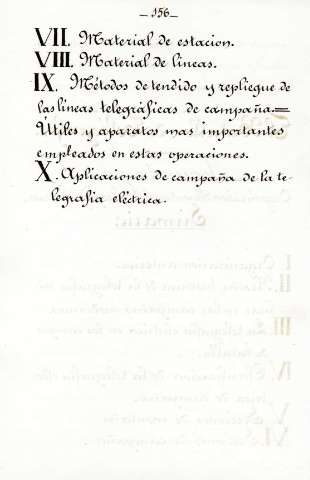 — 156 —
VII. Material de estacion.
VIII. Material de lineas.
IX. Métodos de tendido y repliegue de
las líneas telegráficas de campaña.=
Útiles y aparatos mas importantes
empleados en estas operaciones.
X. Aplicaciones de campaña de la te-
legrafia eléctrica.